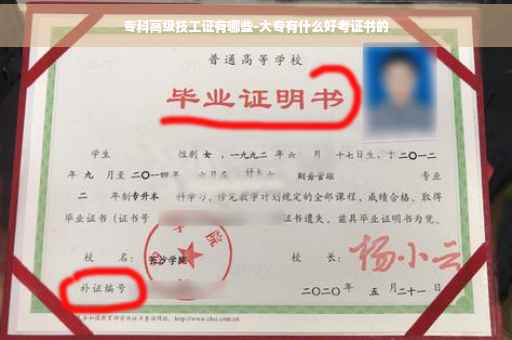 专科高级技工证有哪些-大专有什么好考证书的
普通高等学校
毕业证明书
学生 性别 女 ，一九九二 年 六 月 十七日生，于 二〇一二
年 九 月至 二〇一四年 六月在 财务管理 专业
二 年制 专升本 科学习，修完教学计划规定的全部课程，成绩合格，取得
毕业证书（证书号 证书遗失，兹具毕业证明书为凭。
校 名： 长沙学院 校 长： 杨小云
补证编号 二〇二〇年 五 月二十一日
http://www.chsi.com.cn